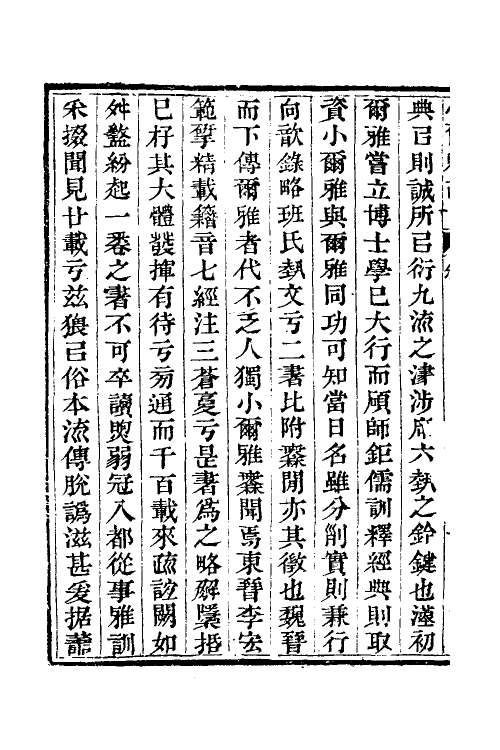 典㠯則誠所㠯衍九流之津涉𢈔六埶之鈐鍵也漢初
爾雅嘗立博士學已大行而碩師鉅儒訓釋經典則取
資小爾雅與爾雅同功可知當日名雖分削實則兼行
向歆錄略班氏埶文亏二書比附纍閒亦其徵也魏晉
而下傳爾雅者代不乏人獨小爾雅纍聞焉東晉李宏
範揅精載籍音七經注三蒼夏亏是書為之略解櫽括
已杼其大體發揮有待亏㫄通而千百載來疏證闕如
舛盭紛起一卷之書不可卒讀煛弱冠入都從事雅訓
釆掇聞見廿載亏茲猥㠯俗本流傳脫譌滋甚爰据舊